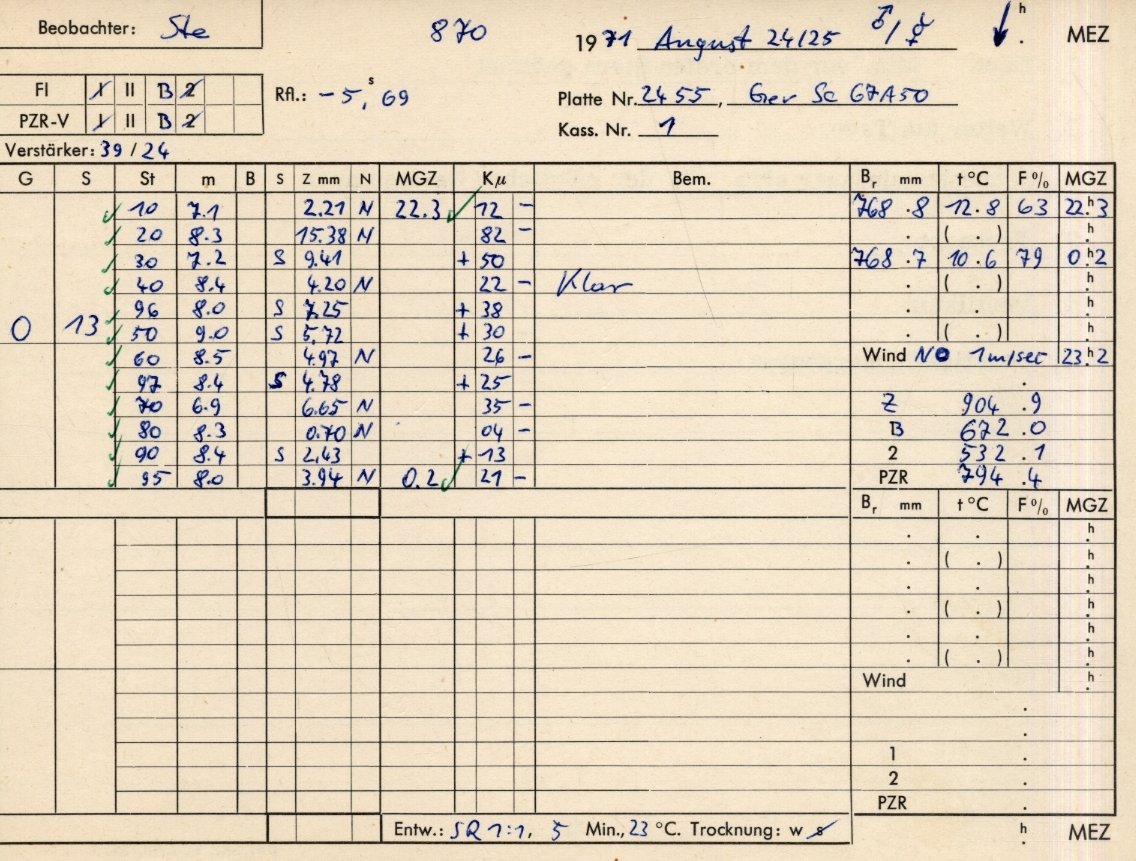 Beobachter: Ste 870 1971 August 24/25 ♂/☿ ↓ h . MEZ
FI I II B 2 Rfl.: -5,s 69 Platte Nr. 2455, Gev Sc 67A50
PZR-V I II B 2 Kass. Nr. 1
Verstärker: 39 / 24
G S St m B S Z mm N MGZ Kμ Bem. Br mm t °C F % MGZ
✓ 10 7.1 2.21 N 22.3 ✓ 12 - 768 .8 12.8 63 22.h3
✓ 20 8.3 15.38 N 82 - . ( . ) .h
✓ 30 7.2 S 9.41 + 50 768 .7 10.6 79 0.h2
✓ 40 8.4 4.20 N 22 - Klar . ( . ) .h
✓ 96 8.0 S 7.25 + 38 . . .h
0 13 ✓ 50 9.0 S 5.72 + 30 . ( . ) .h
✓ 60 8.5 4.97 N 26 - Wind NO 1m/sec 23.h2
✓ 97 8.4 S 4.78 + 25 .
✓ 70 6.9 6.65 N 35 - Z 904 .9
✓ 80 8.3 0.70 N 04 - B 672 .0
✓ 90 8.4 S 2.43 + 13 2 532 .1
✓ 95 8.0 3.94 N 0.2 ✓ 21 - PZR 794 .4
Br mm t °C F % MGZ
. . .h
. ( . ) .h
. . .h
. ( . ) .h
. . .h
. ( . ) .h
Wind .h
.
.
1 .
2 .
PZR .
Entw.: SR 1:1, 5 Min., 23 °C. Trocknung: w s h . MEZ